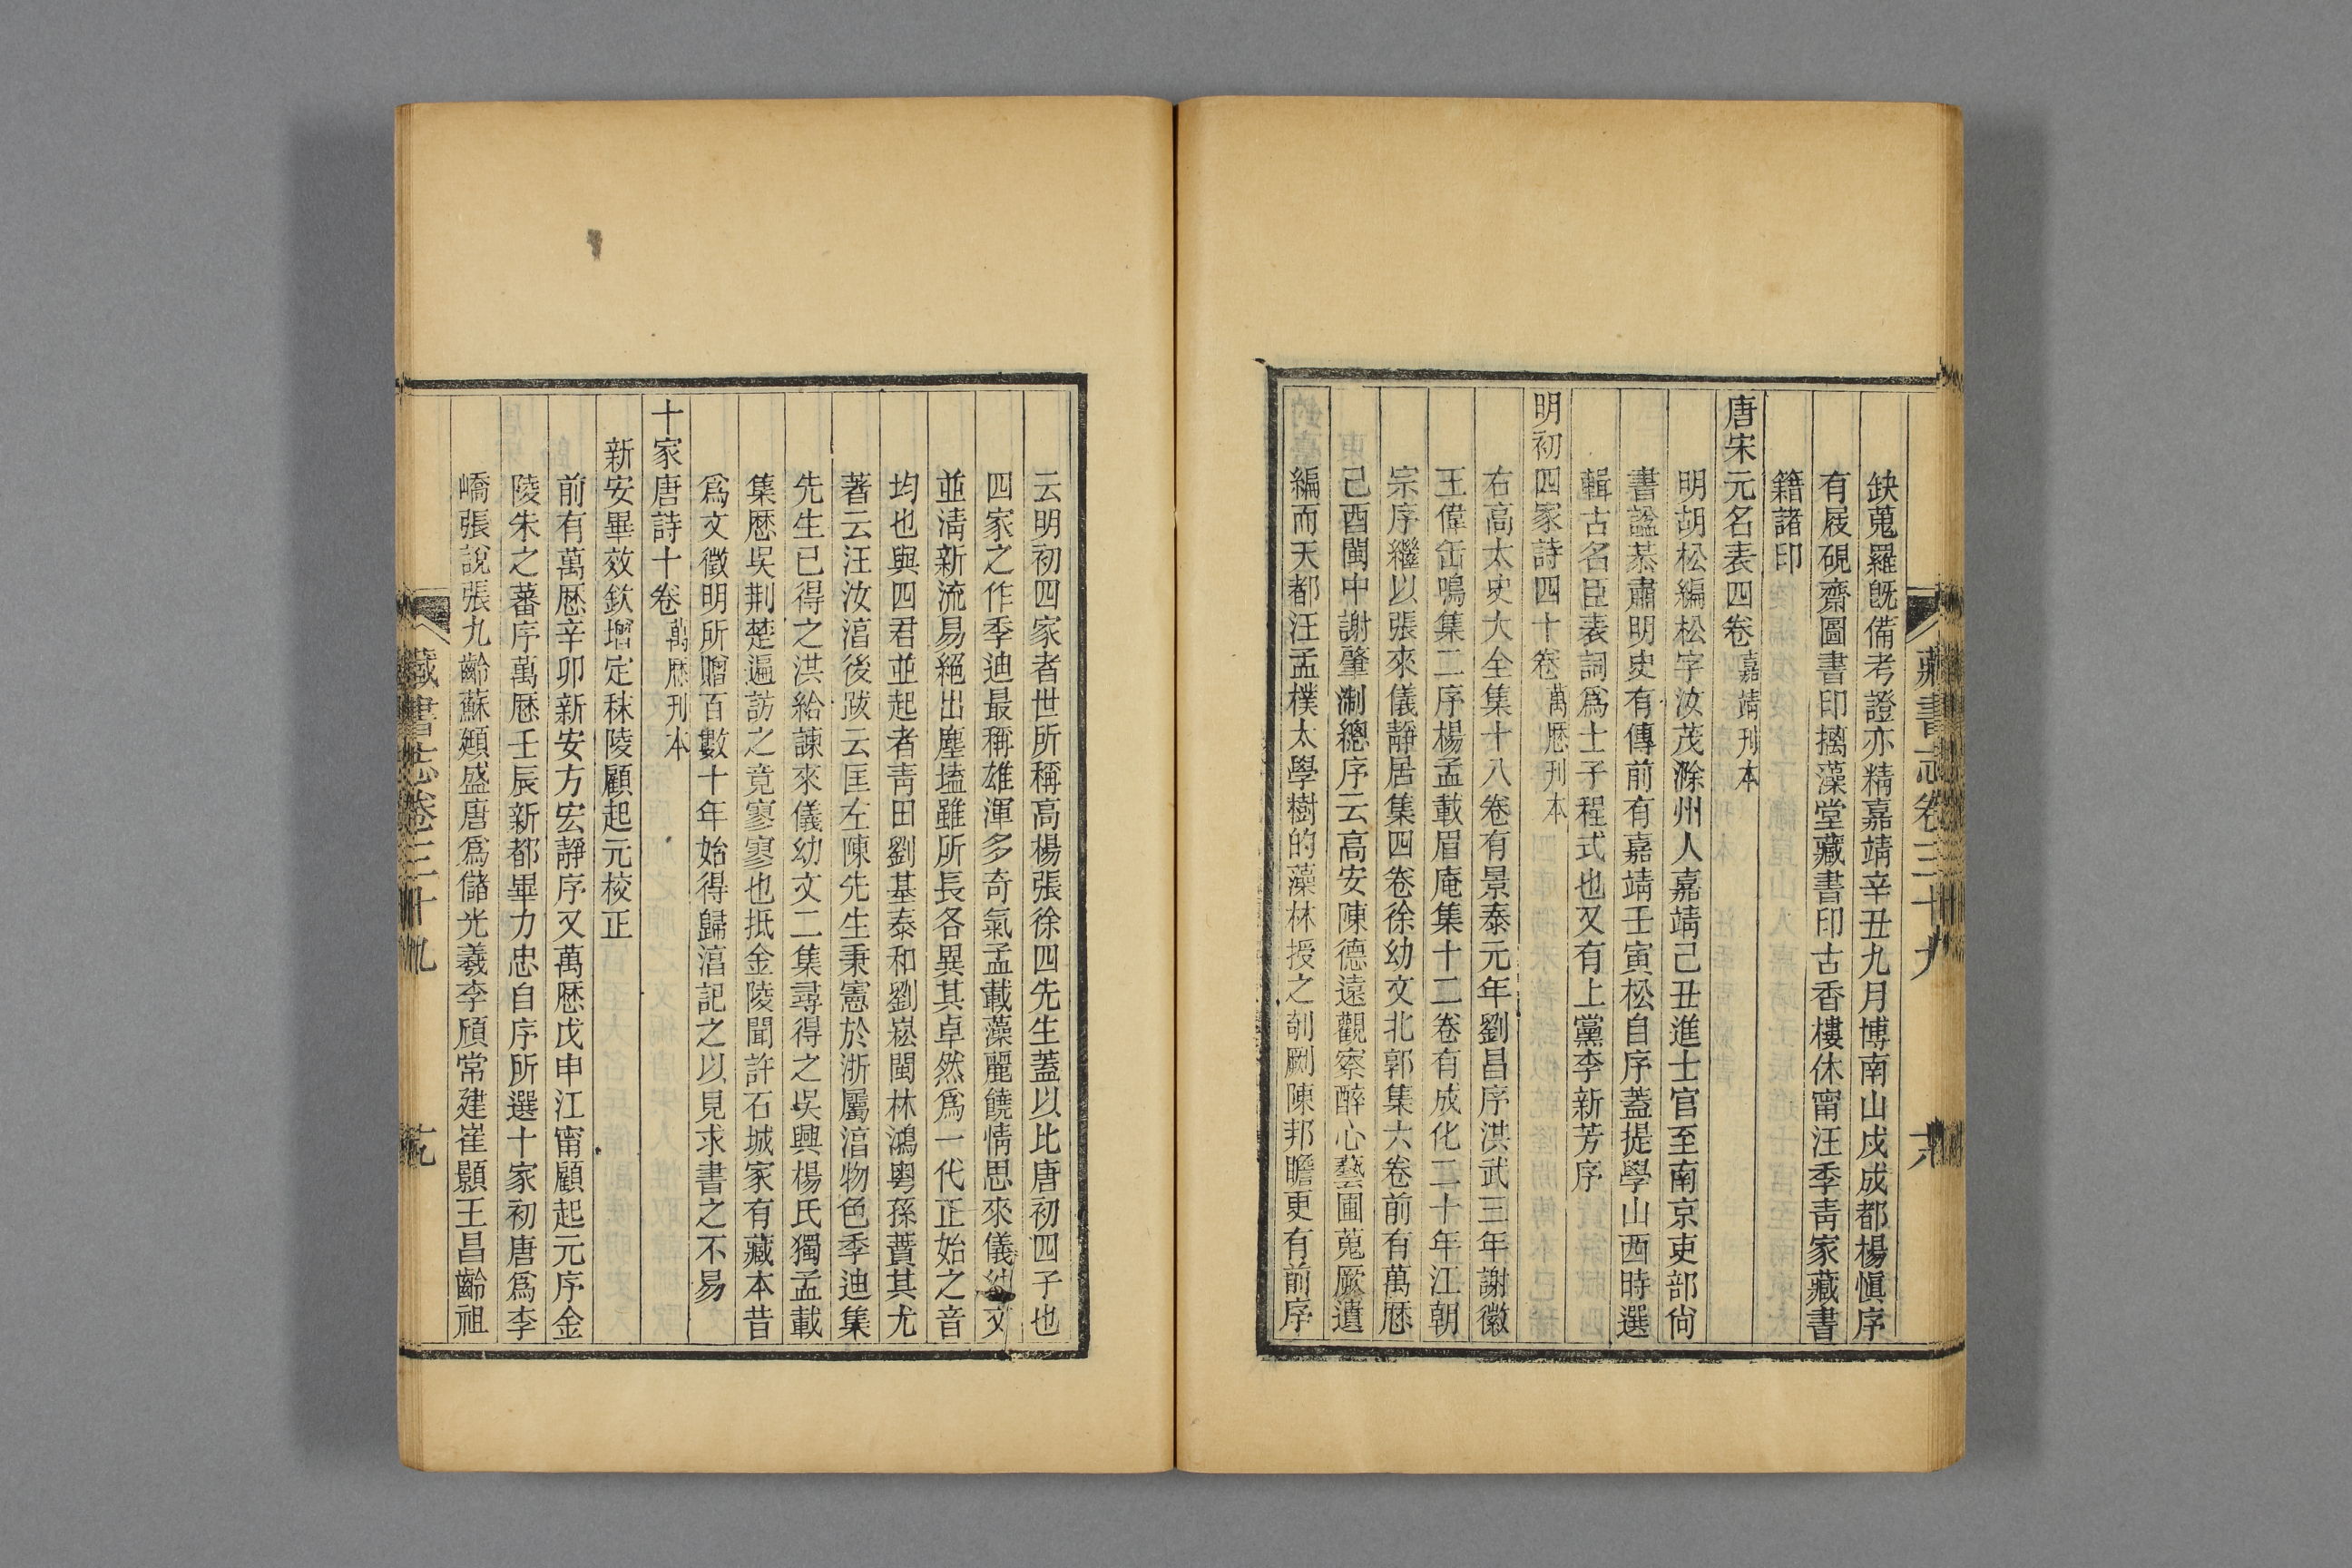 藏書志卷三十九
缺蒐羅旣備考證亦精嘉靖辛丑九月博南山戍成都楊愼序
有屐硯齋圖書印摛藻堂藏書印古香樓休甯汪季靑家藏書
籍諸印
唐宋元名表四卷嘉靖刊本
明胡松編松字汝茂滁州人嘉靖己丑進士官至南京吏部尙
書諡恭肅明史有傳前有嘉靖壬寅松自序蓋提學山西時選
輯古名臣表詞爲士子程式也又有上黨李新芳序
明初四家詩四十卷萬厯刊本
右高太史大全集十八卷有景泰元年劉昌序洪武三年謝徽
王偉缶鳴集二序楊孟載眉庵集十二卷有成化二十年江朝
宗序繼以張來儀靜居集四卷徐幼文北郭集六卷前有萬厯
己酉閩中謝肇淛總序云高安陳德遠觀察醉心藝圃蒐厥遺
編而天都汪孟樸太學樹的藻林授之剞劂陳邦瞻更有前序
云明初四家者世所稱高楊張徐四先生蓋以比唐初四子也
四家之作季迪最稱雄渾多奇氣孟載藻麗饒情思來儀幼文
並淸新流易絕出塵壒雖所長各異其卓然爲一代正始之音
均也與四君並起者靑田劉基泰和劉崧閩林鴻粵孫蕡其尤
著云汪汝淯後跋云匡左陳先生秉憲於浙屬淯物色季迪集
先生已得之洪給諫來儀幼文二集尋得之吳興楊氏獨孟載
集厯吳荆楚遍訪之竟寥寥也抵金陵聞許石城家有藏本昔
爲文徵明所贈百數十年始得歸淯記之以見求書之不易
十家唐詩十卷萬厯刊本
新安畢效欽增定秣陵顧起元校正
前有萬厯辛卯新安方宏靜序又萬厯戊申江甯顧起元序金
陵朱之蕃序萬厯壬辰新都畢力忠自序所選十家初唐爲李
嶠張說張九齡蘇頲盛唐爲儲光羲李頎常建崔顥王昌齡祖
藏書志卷三十九